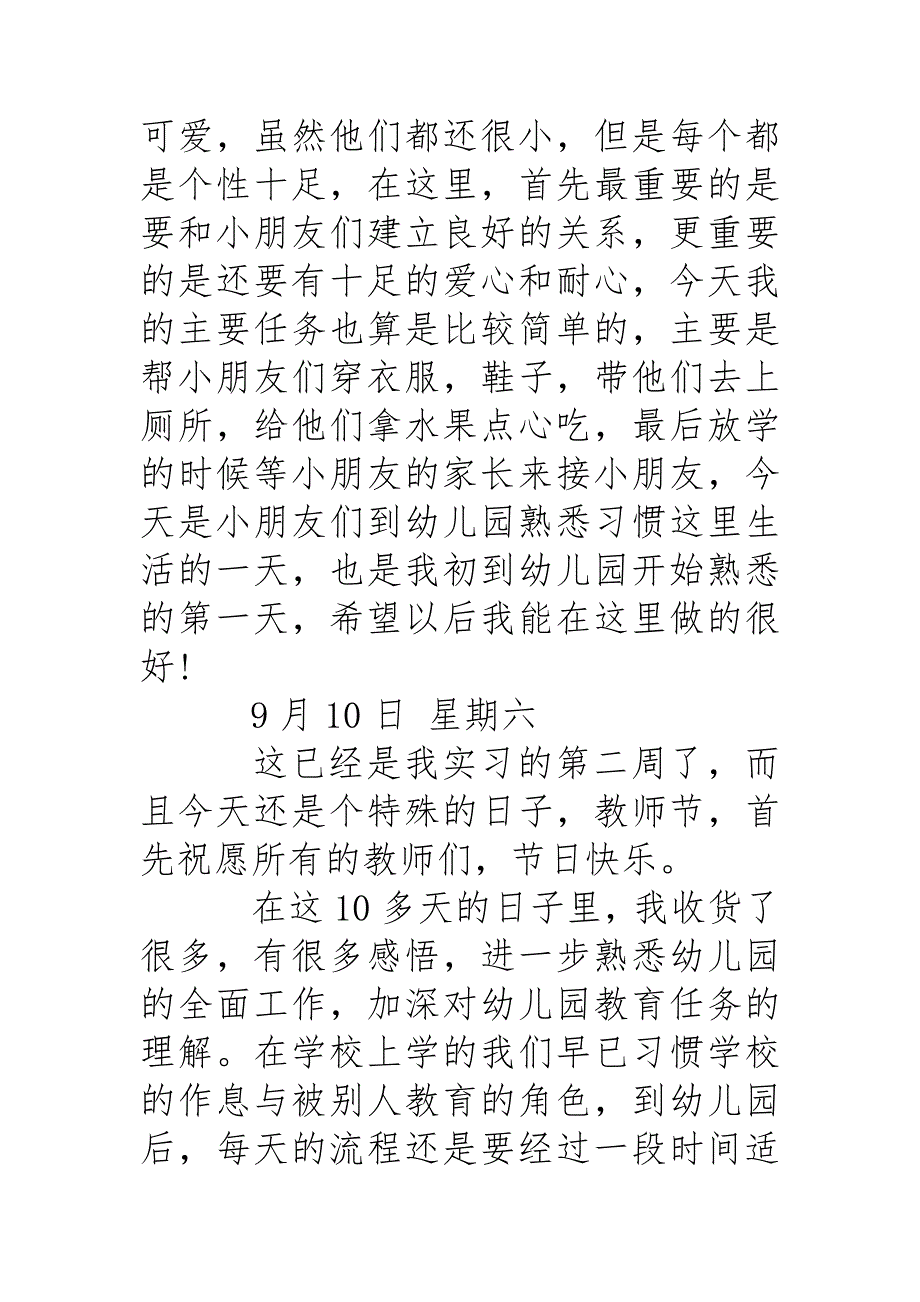 可爱，虽然他们都还很小，但是每个都
是个性十足，在这里，首先最重要的是
要和小朋友们建立良好的关系，更重要
的是还要有十足的爱心和耐心，今天我
的主要任务也算是比较简单的，主要是
帮小朋友们穿衣服，鞋子，带他们去上
厕所，给他们拿水果点心吃，最后放学
的时候等小朋友的家长来接小朋友，今
天是小朋友们到幼儿园熟悉习惯这里生
活的一天，也是我初到幼儿园开始熟悉
的第一天，希望以后我能在这里做的很
好!
9月10日 星期六
这已经是我实习的第二周了，而
且今天还是个特殊的日子，教师节，首
先祝愿所有的教师们，节日快乐。
在这10多天的日子里，我收货了
很多，有很多感悟，进一步熟悉幼儿园
的全面工作，加深对幼儿园教育任务的
理解。在学校上学的我们早已习惯学校
的作息与被别人教育的角色，到幼儿园
后，每天的流程还是要经过一段时间适